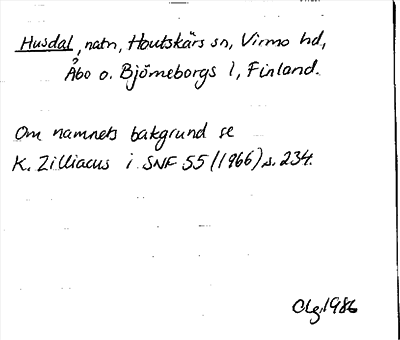 Husdal, natn, Houtskärs sn, Virmo hd,
Åbo o. Björneborgs l, Finland.
Om namnets bakgrund se
K. Zilliacus i SNF 55 (1966) s. 234.
Olg, 1986